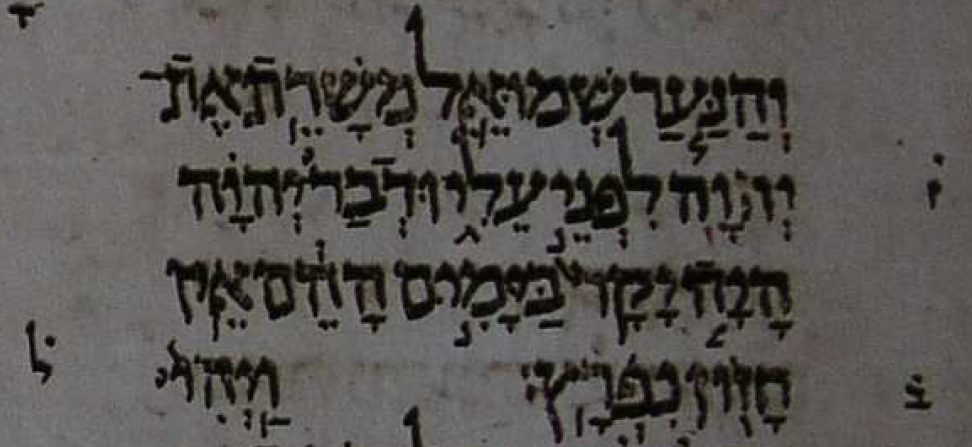 וְהַנַּ֨עַר שְׁמוּאֵ֜ל מְשָׁרֵ֥ת אֶת־
יְהוָ֖ה לִפְנֵ֣י עֵלִ֑י וּדְבַר־יְהוָ֗ה
הָיָ֤ה יָקָר֙ בַּיָּמִ֣ים הָהֵ֔ם אֵ֥ין
חָז֖וֹן נִפְרָֽץ׃ וַֽיְהִי֙